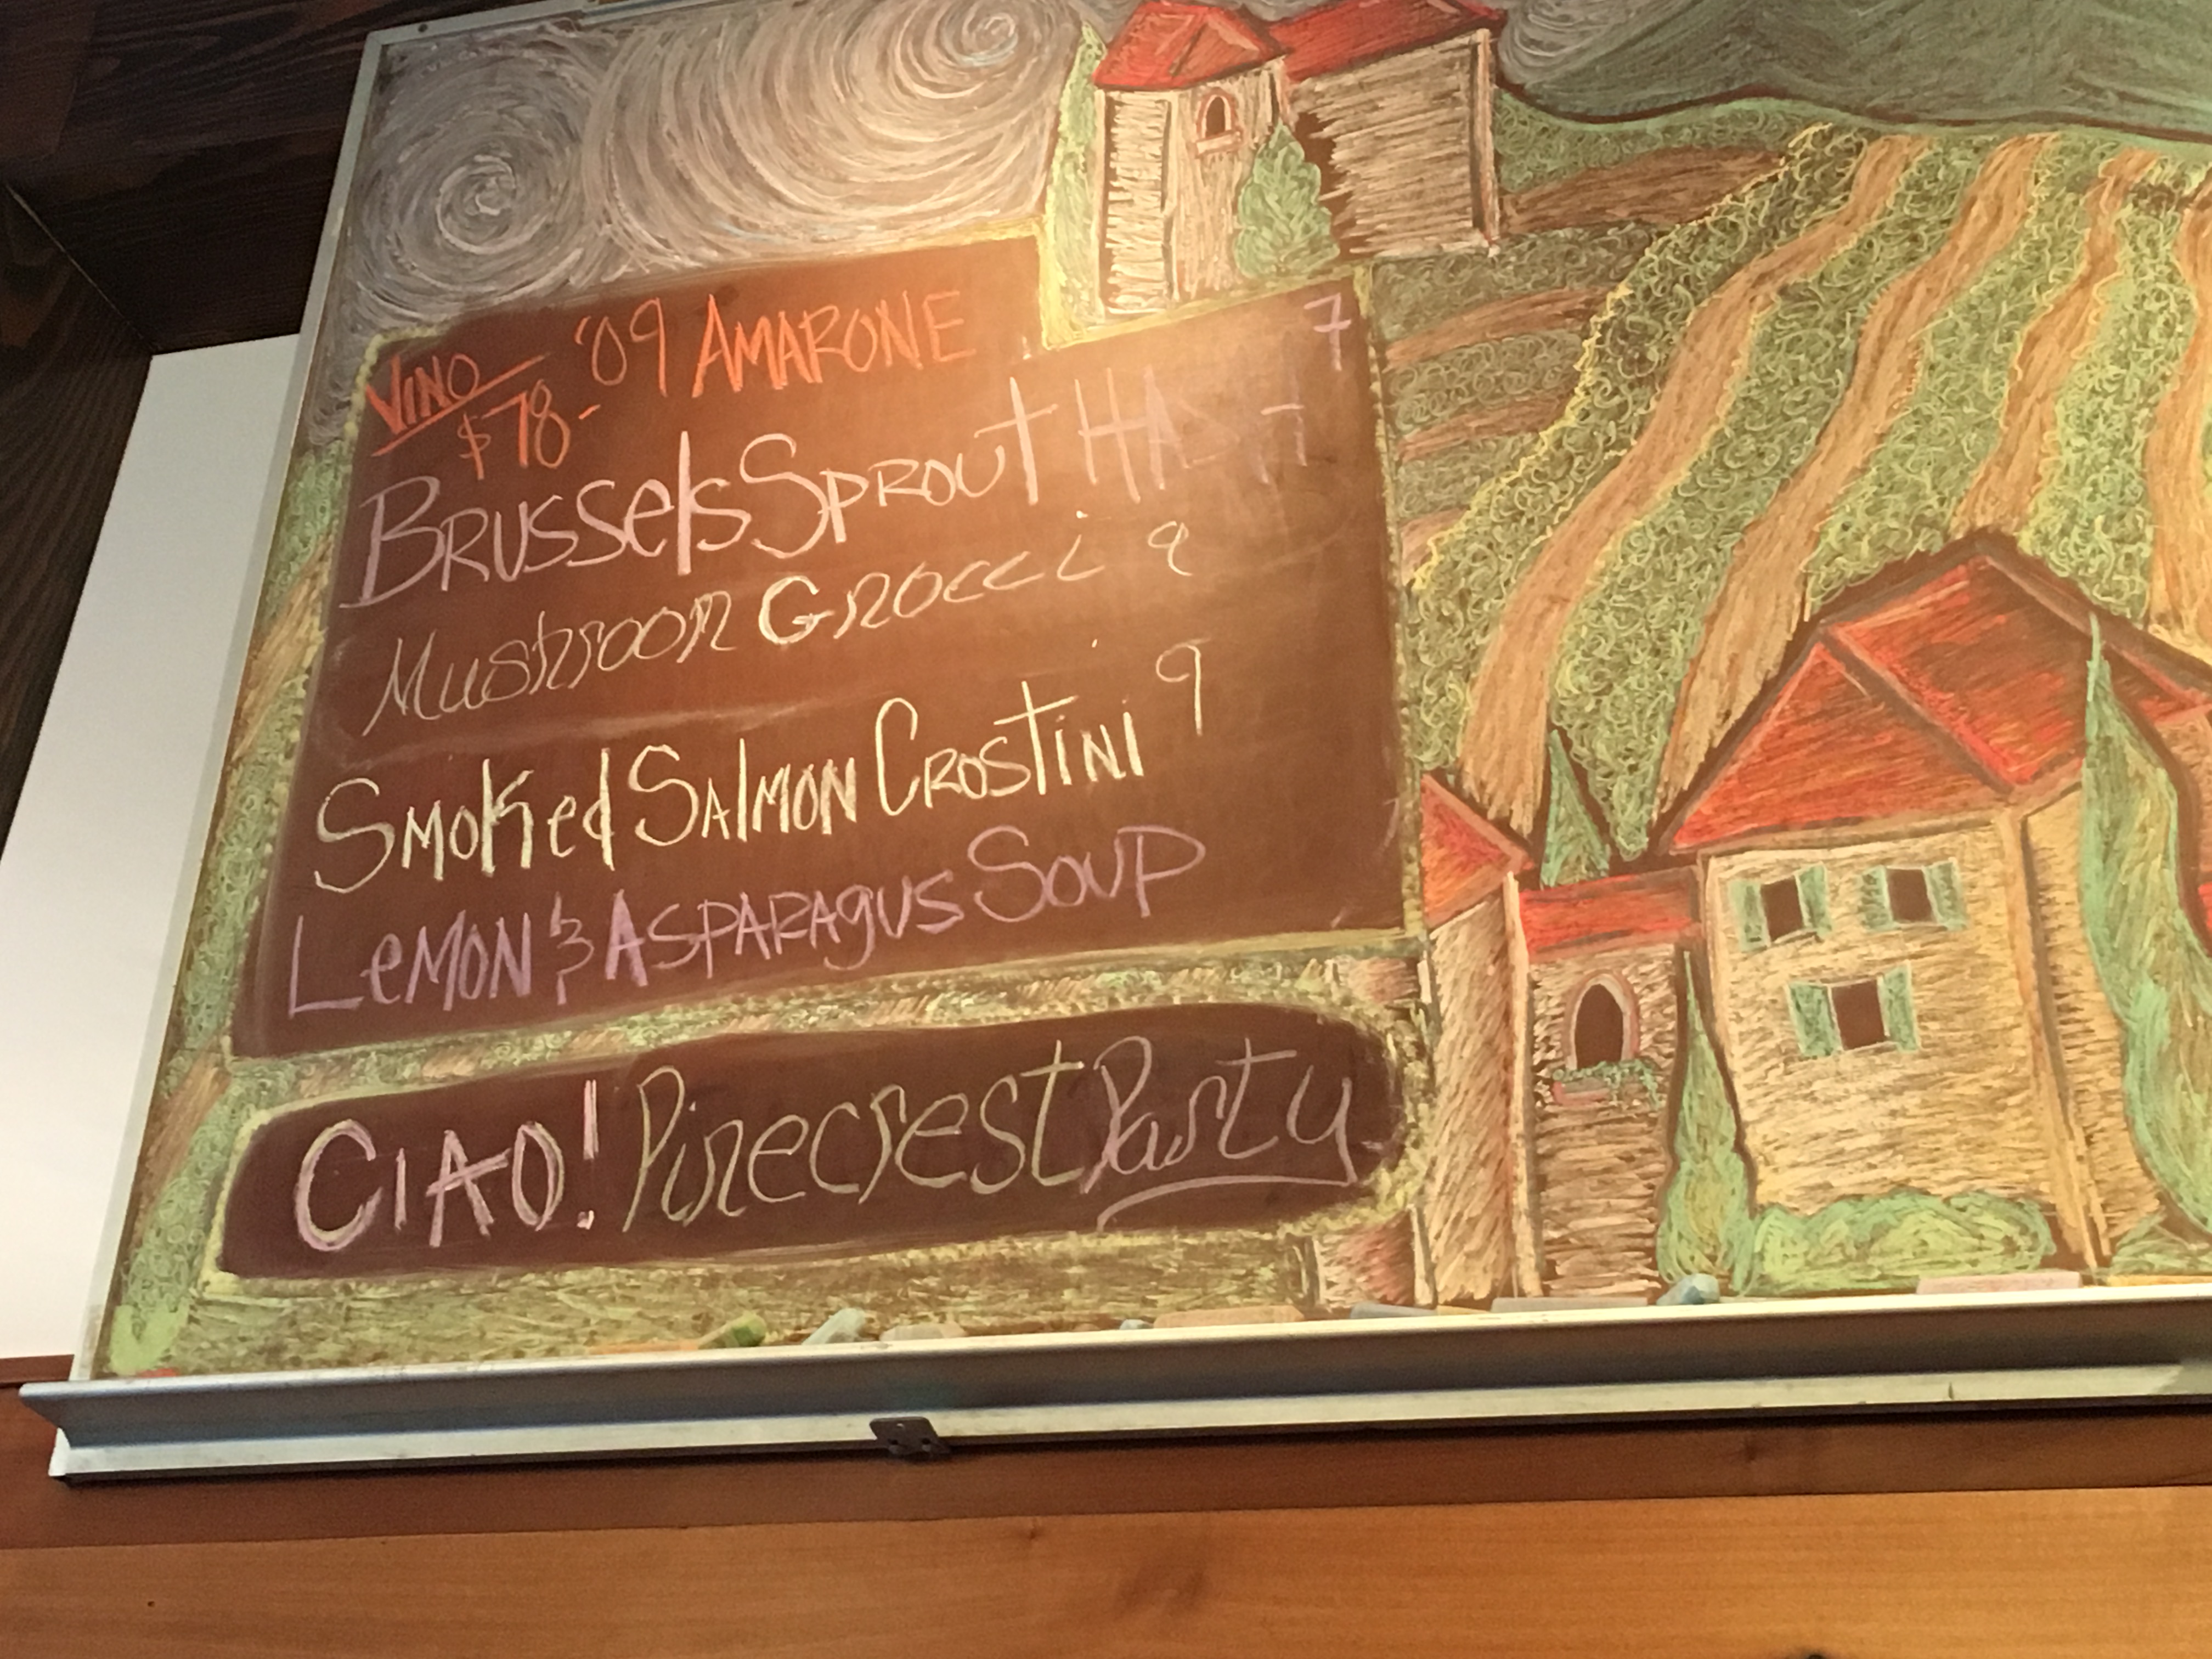 VINO '09 AMARONE
$78-
BRUSSELS SPROUT HASH 7
Mushroom Gnocci 9
SMOKED SALMON CROSTINI 9
LEMON & ASPARAGUS SOUP
CIAO! Pinecrest Party